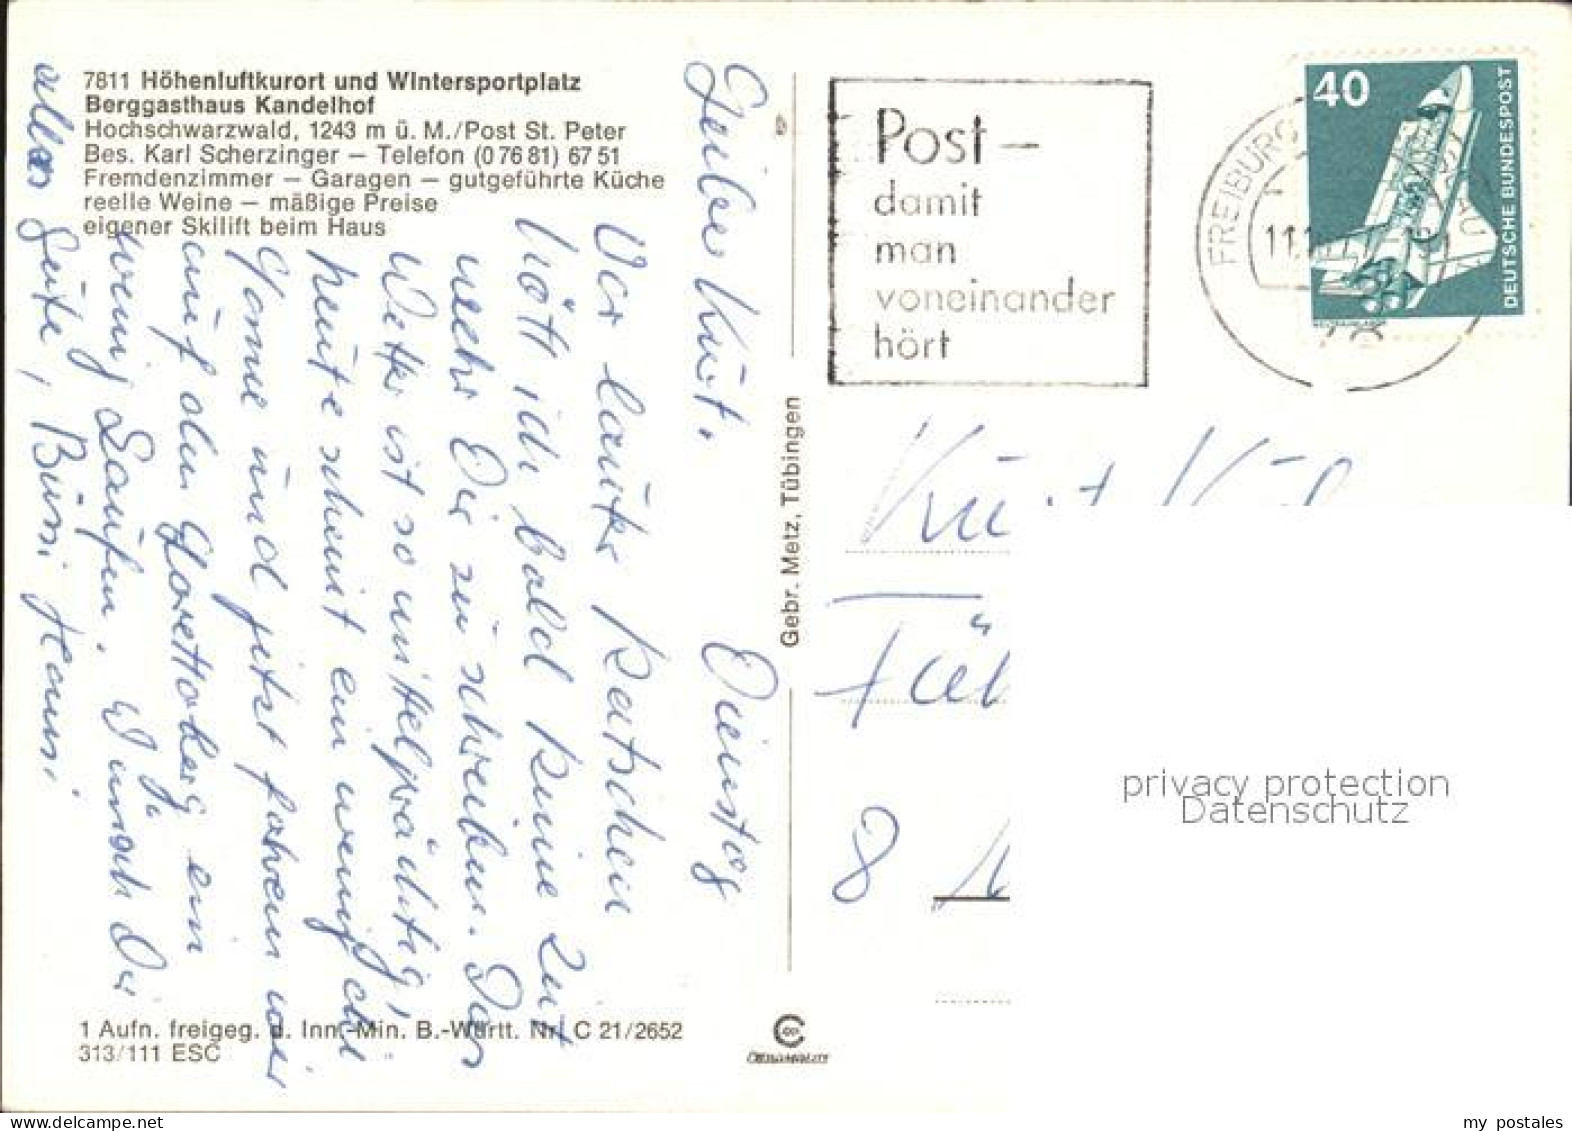 7811 Höhenluftkurort und Wintersportplatz
Berggasthaus Kandelhof
Hochschwarzwald, 1243 m ü. M./Post St. Peter
Bes. Karl Scherzinger — Telefon (0 76 81) 67 51
Fremdenzimmer — Garagen — gutgeführte Küche
reelle Weine — mäßige Preise
eigener Skilift beim Haus
Dienstag
Lieber Kurt.
Vor lauter Ratschen
hätt ich bald keine Zeit
mehr Dir zu schreiben. Das
Wetter ist so mittelprächtig,
heute scheint ein wenig die
Sonne und jetzt fahren wir
auf den Lorettoberg ein
wenig Laufen. Wünsch Dir
alles Gute, Bussi Hansi
1 Aufn. freigeg. d. Inn.-Min. B.-Württ. Nr. C 21/2652
313/111 ESC
Gebr. Metz, Tübingen
Post —
damit
man
voneinander
hört
FREIBURG
11.
40
DEUTSCHE BUNDESPOST
Kurt
8
privacy protection
Datenschutz
my postales